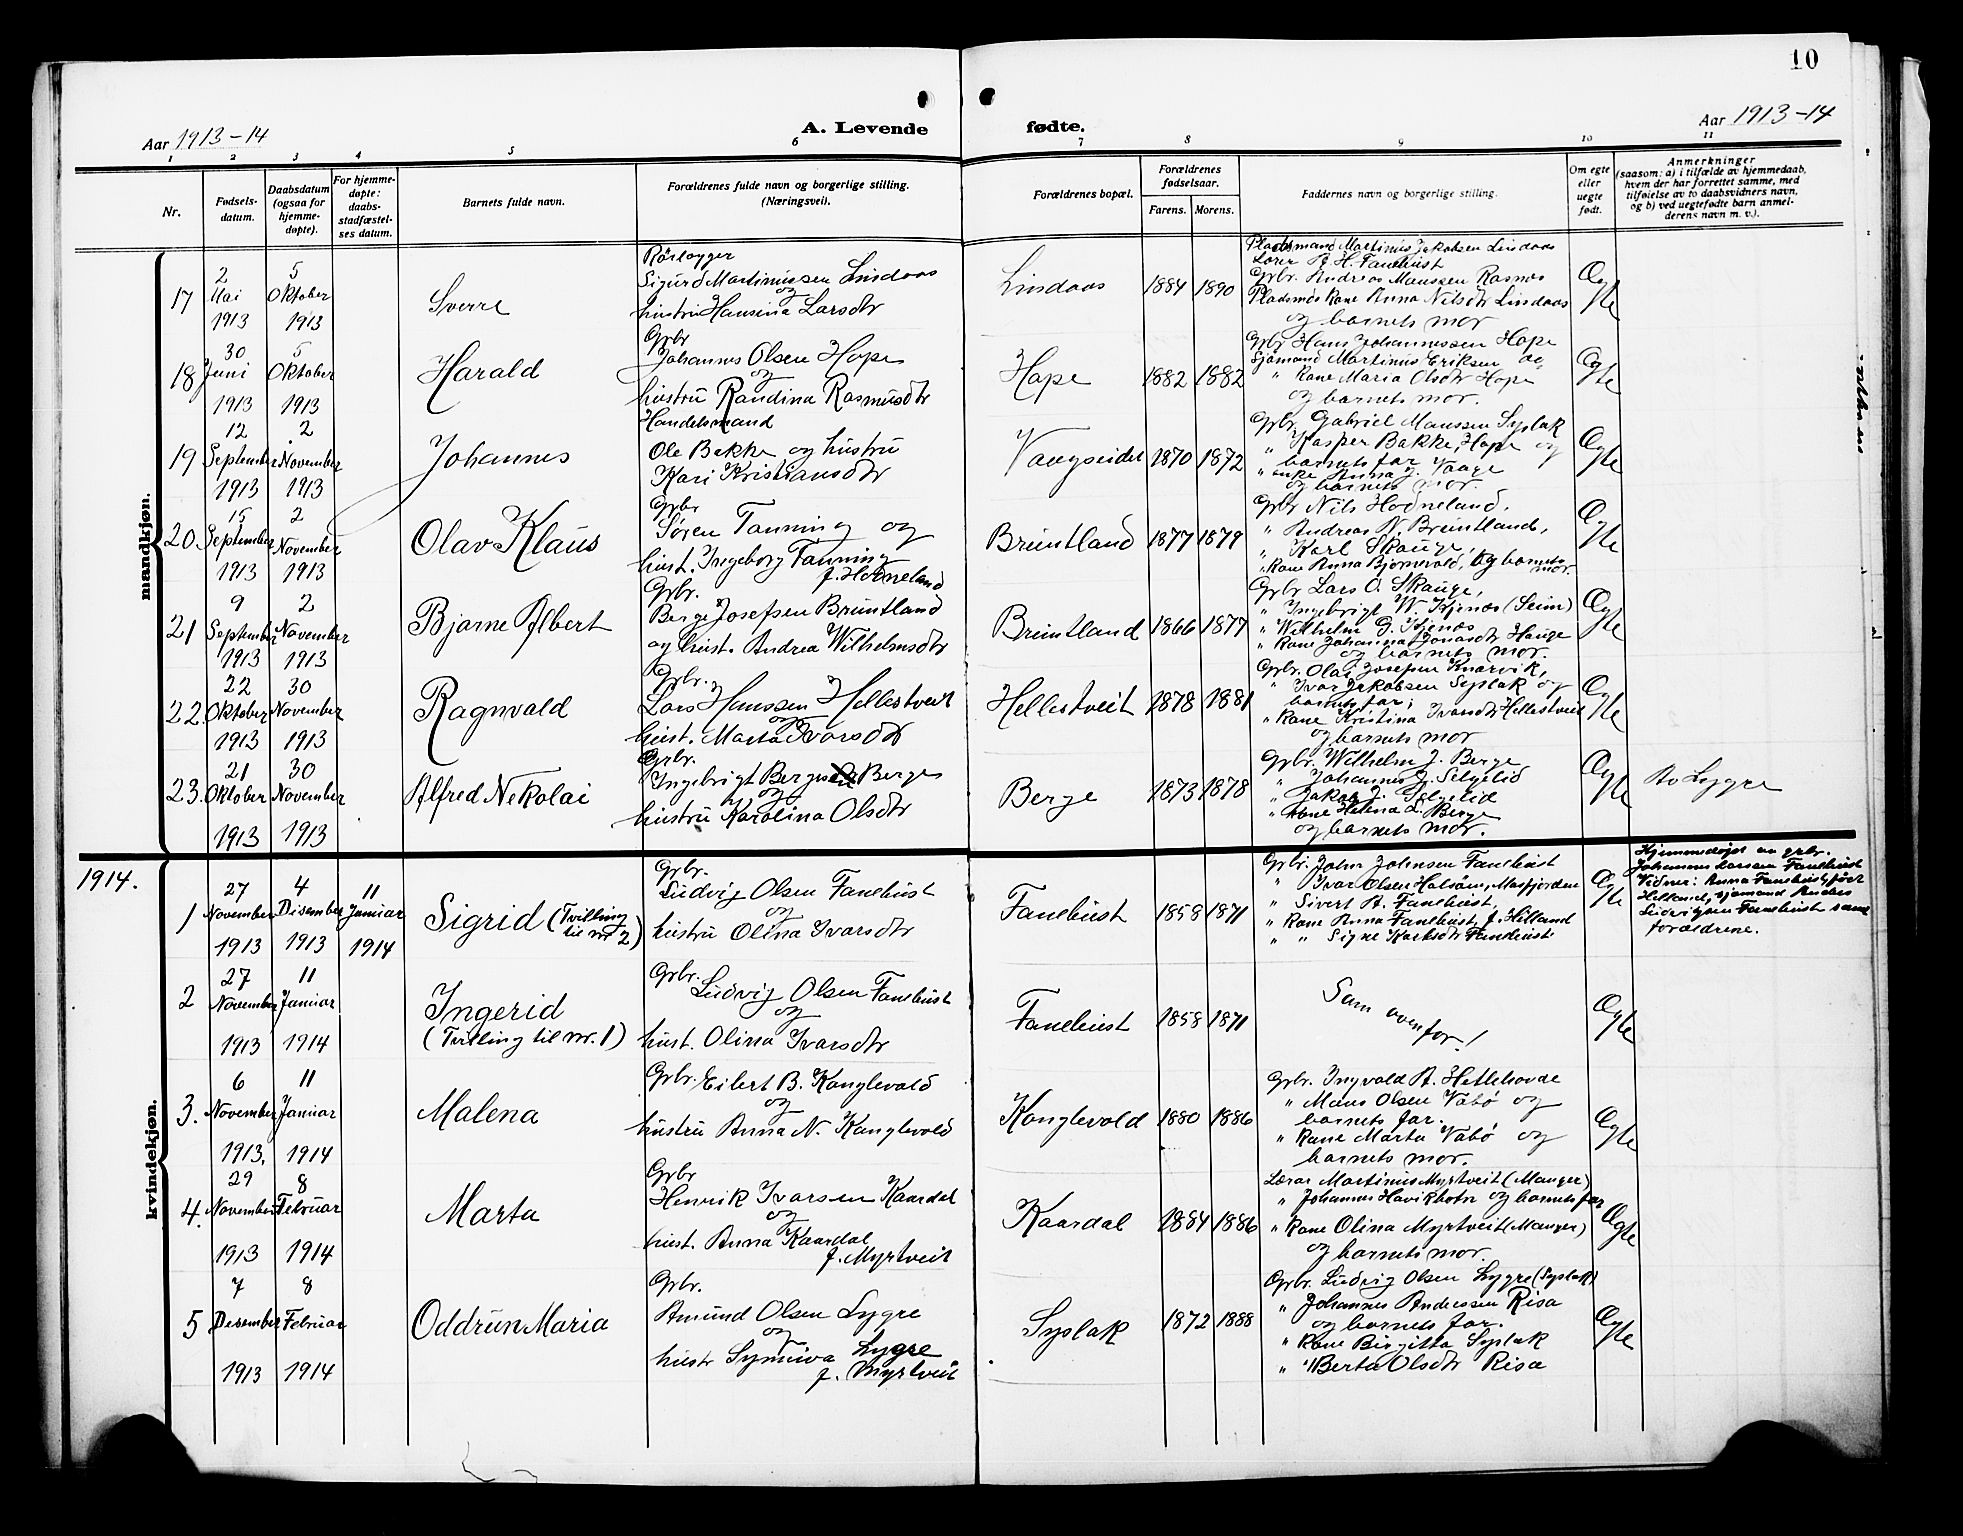 10
Aar 1913-14
A. Levende fødte.
Aar 1913-14
1 2 3 4 5 6 7 8 9 10 11
Nr.
Fødsels-
datum.
Daabsdatum
(ogsaa for
hjemme-
døpte).
For hjemme-
døpte:
daabs-
stadfæstel-
ses datum.
Barnets fulde navn.
Forældrenes fulde navn og borgerlige stilling.
(Næringsvei).
Forældrenes bopæl.
Forældrenes
fødselsaar.
Farens. Morens.
Faddernes navn og borgerlige stilling.
Om egte
eller
uegte
født.
Anmerkninger
(saasom: a) i tilfælde av hjemmedaab,
hvem der har forrettet samme, med
tilføielse av to daabsvidners navn,
og b) ved uegtefødte barn anmel-
derens navn m. v.).
mandkjøn.
17
2
Mai
1913
5
Oktober
1913
Sverre
Rørlægger
Sigurd Martinussen Lindaas
og
hustru Hansina Larsdtr
Lindaas
1884 1890
Pladsmand Martinus Jakobsen Lindaas
Lærer A. H. Fanehust
Grbr. Andreas Monssen Rasnes
Pladsmds kone Anna Nilsdtr Lindaas
og barnets mor
Ægte
18
30
Juni
1913
5
Oktober
1913
Harald
Grbr
Johannes Olsen Hope
og
hustru Randina Rasmusdtr
Hope
1882 1882
Grbr Hans Johannessen Hope
Sjømand Martinus Eriksen do
" Kone Maria Olsdtr Hope
og barnets mor.
Ægte
19
12
September
1913
2
November
1913
Johannes
Handelsmand
Ole Bakke og hustru
Kari Kristiansdtr
Vaagseidet
1870 1872
Grbr. Gabriel Monssen Syslak
" Kasper Bakke, Hope og
barnets far
" enke Anna J. Vaage
og barnets mor.
Ægte
20.
15
September
1913
2
November
1913
Olav Klaus
Grbr
Søren Tanning og
hust. Ingeborg Tanning
f. Hodneland
Bruntland
1877 1879
Grbr Nils Hodneland,
" Andreas N. Bruntland,
" Karl Skauge,
" Kone Anna Bjørnevold, og barnets
mor.
Ægte
21
9
September
1913
2
November
1913
Bjarne Albert
Grbr.
Berge Josefsen Bruntland
og hust. Andrea Wilhelmsdtr
Bruntland
1866 1877
Grbr Lars O. Skauge,
" Ingebrigt W. Hjenæs (Seim)
" Wilhelm G. Hjenæs
" Kone Johanna Jonasdtr Hauge
og barnets mor.
Ægte
22.
22
Oktober
1913
30
November
1913
Ragnvald
Grbr.
Lars Hanssen Hellestveit
og
hust. Marta Ivarsdtr
Hellestveit
1878 1881
Grbr. Olai Josefsen Knarvik,
" Ivar Jakobsen Syslak og
barnets far;
" Kone Kristina Ivarsdtr Hellestveit
og barnets mor
Ægte
23.
21
Oktober
1913
30
November
1913
Alfred Nekolai
Grbr.
Ingebrigt Berge
og
hustru Karolina Olsdtr
Berge
1873 1878
Grbr. Wilhelm J. Berge
" Johannes J. Selgelid
" Jakob J. Selgelid
" Kone Helena L. Berge
og barnets mor.
Ægte
Av Lygre
1914.
kvindekjøn.
1
27
November
1913
4
Disember
1913
11
Januar
1914
Sigrid (Tvilling
til nr 2)
Grbr.
Ludvig Olsen Fanehust
og
hustru Olina Ivarsdtr
Fanehust
1858 1871
Grbr. John Johnsen Fanehust
" Ivar Olsen Halsøen, Masfjorden
" Sivert A. Fanehust,
" Kone Anna Fanehust, f. Helland
" " Signe Karlsdtr Fanehust
Ægte
Hjemmedøpt av grbr.
Johannes Larsen Fanehust
Vidner: Anna Fanehust, født
Helland, sjømand Anders
Ludvigsen Fanehust samt
forældrene.
2
27
November
1913
11
Januar
1914
Ingerid
(Tvilling til nr. 1)
Grbr.
Ludvig Olsen Fanehust
og
hust. Olina Ivarsdtr
Fanehust
1858 1871
Som ovenfor!
Ægte
3.
6
November
1913,
11
Januar
1914
Malena
Grbr. Eilert B. Kanglevold
og
hustru Anna N. Kanglevold
Kanglevold
1880 1886
Grbr. Ingvald A. Hetlehovde
" Mons Olsen Vabø og
barnets far.
" Kone Marta Vabø og
barnets mor.
Ægte
4.
29
November
1913
8
Februar
1914
Marta
Grbr
Henrik Ivarsen Kaardal
og
hust. Anna Kaardal
f. Myrtveit
Kaardal
1884 1886
Lærar Martinus Myrtveit (Manger)
" Johannes Havikbotn og barnets far
" Kone Olina Myrtveit (Manger)
og barnets mor.
Ægte
5
7
Desember
1913
8
Februar
1914
Oddrun Maria
Grbr.
Amund Olsen Lygre
og
hustr Synneva Lygre
f. Myrtveit
Syslak
1872 1888
Grbr. Ludvig Olsen Lygre (Syslak)
" Johannes Anderssen Risa
og barnets far.
" Kone Birgitta Syslak
" " Berta Olsdtr Risa
Ægte